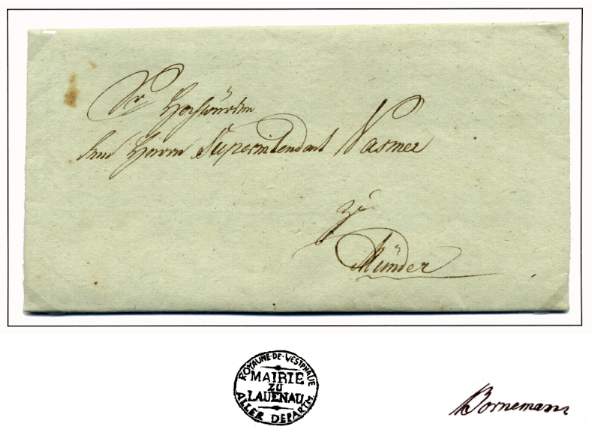 Sr Hochwürden
dem Herrn Superintendent Vasmer
zu
Münder
ROYAUME·DE·WESTPHALIE
MAIRIE
ZU
LAUENAU
ALLER DEPARTM.
Bornemann